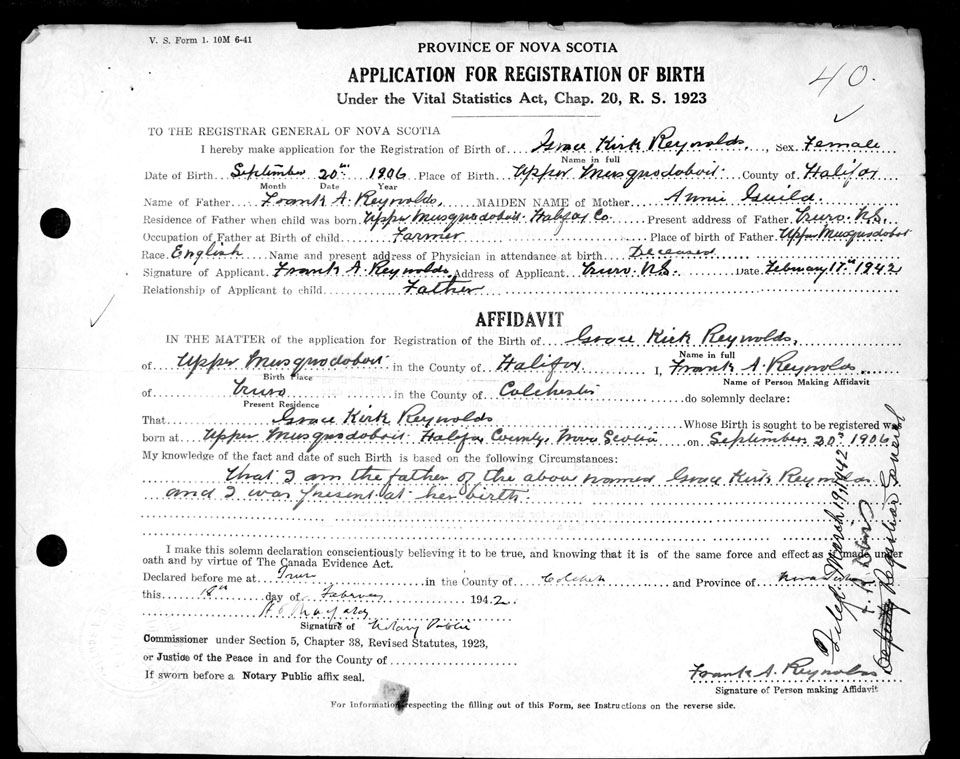 V. S. Form 1. 10M 6-41
40.
PROVINCE OF NOVA SCOTIA
APPLICATION FOR REGISTRATION OF BIRTH
Under the Vital Statistics Act, Chap. 20, R. S. 1923
TO THE REGISTRAR GENERAL OF NOVA SCOTIA
I hereby make application for the Registration of Birth of Grace Kirk Reynolds, Sex Female
Name in full
Date of Birth September 20th 1906 Place of Birth Upper Musquodoboit County of Halifax
Month Date Year
Name of Father Frank A. Reynolds. MAIDEN NAME of Mother Annie Guild.
Residence of Father when child was born. Upper Musquodoboit Halifax Co. Present address of Father. Truro. N.S.
Occupation of Father at Birth of child Farmer Place of birth of Father Upper Musquodoboit
Race. English Name and present address of Physician in attendance at birth Deceased
Signature of Applicant. Frank A. Reynolds. Address of Applicant Truro. N.S. Date February 17th 1942
Relationship of Applicant to child Father
AFFIDAVIT
IN THE MATTER of the application for Registration of the Birth of Grace Kirk Reynolds,
Name in full
of Upper Musquodoboit in the County of Halifax I, Frank A. Reynolds
Birth Place Name of Person Making Affidavit
of Truro in the County of Colchester do solemnly declare:
Present Residence
That Grace Kirk Reynolds Whose Birth is sought to be registered was
born at Upper Musquodoboit Halifax County, Nova Scotia on September 20th 1906
My knowledge of the fact and date of such Birth is based on the following Circumstances:
That I am the father of the above named Grace Kirk Reynolds
and I was present at her birth.
I make this solemn declaration conscientiously believing it to be true, and knowing that it is of the same force and effect as if made under
oath and by virtue of The Canada Evidence Act.
Declared before me at Truro in the County of Colchester and Province of Nova Scotia
this day of February 1942
Signature of Notary Public
Commissioner under Section 5, Chapter 38, Revised Statutes, 1923,
or Justice of the Peace in and for the County of
If sworn before a Notary Public affix seal.
Frank A. Reynolds
Signature of Person making Affidavit
For Information respecting the filling out of this Form, see Instructions on the reverse side.
Filed March 19, 1942
Deputy Registrar General